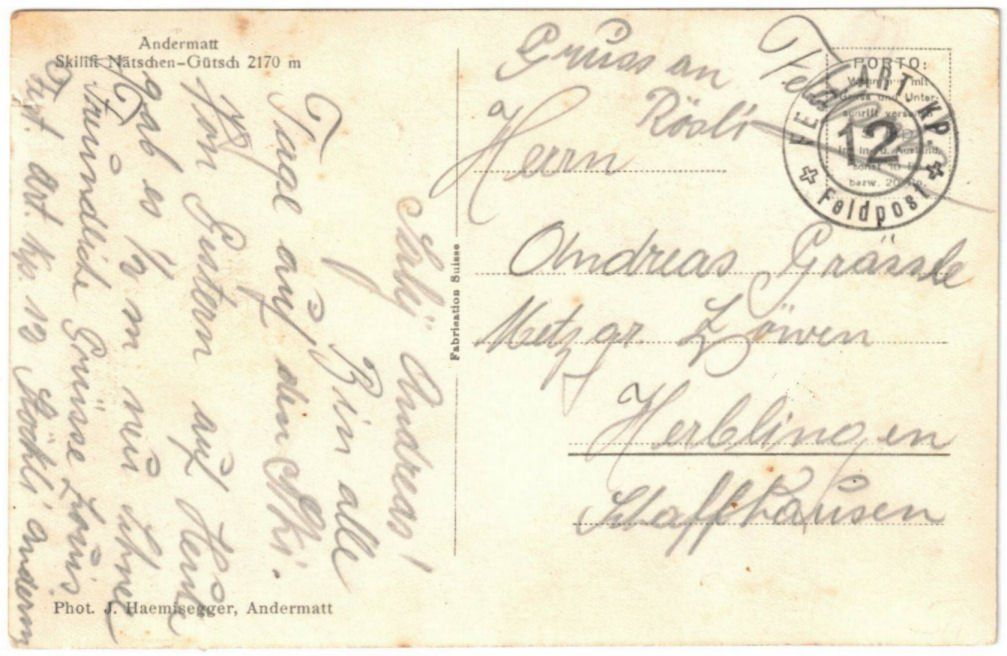 Andermatt
Skilift Nätschen-Gütsch 2170 m
Saly Andreas!
Bin alle
Tage auf den Ski.
Von Gestern auf Heute
gab es ½ m neu Schnee
Freundliche Grüsse Louis
Fest. Art. Kp. 12 Stöckli Anderm
Fabrication Suisse
Phot. J. Haemisegger, Andermatt
Gruss an
Rösli
Feldpost
PORTO:
FEST. ART. KP.
12
Feldpost
Herrn
Andreas Grässle
Metzgr. Löwen
Herblingen
Schaffhausen